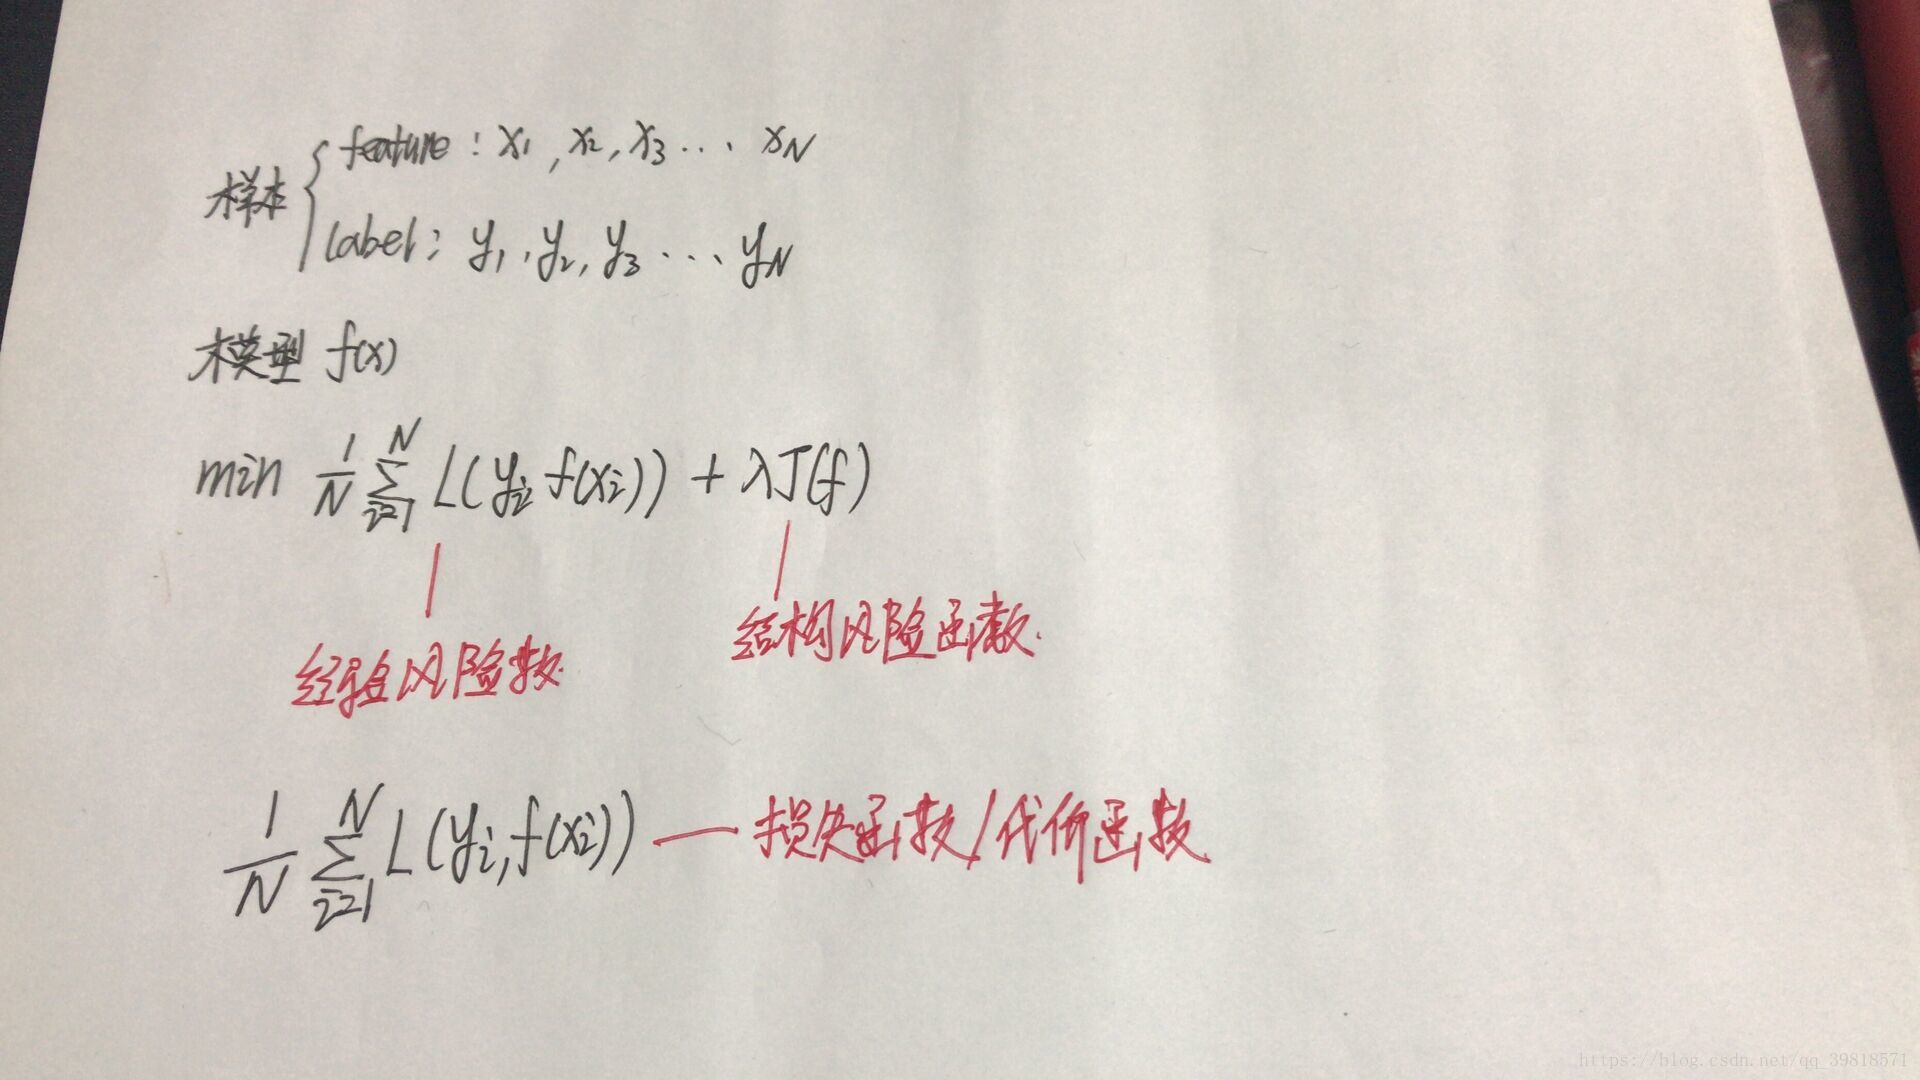 样本 { feature : x1, x2, x3 ... xN
label : y1, y2, y3 ... yN
模型 f(x)
min 1/N ∑_{i=1}^{N} L(yi f(xi)) + λJ(f)
经验风险数. 结构风险函数.
1/N ∑_{i=1}^{N} L(yi, f(xi)) — 损失函数/代价函数
https://blog.csdn.net/qq_39818571